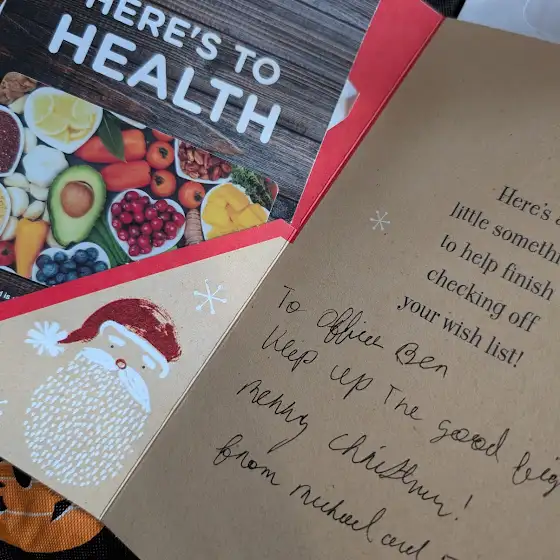 HERE'S TO
HEALTH
Here's a
little somethi
to help finish
checking off
your wish list!
To Office Ben
Keep up The good
merry Christmas!
from michael and